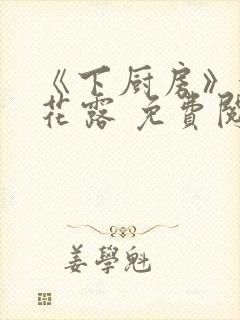 《下厨房》
花露 免費閱
姜學魁